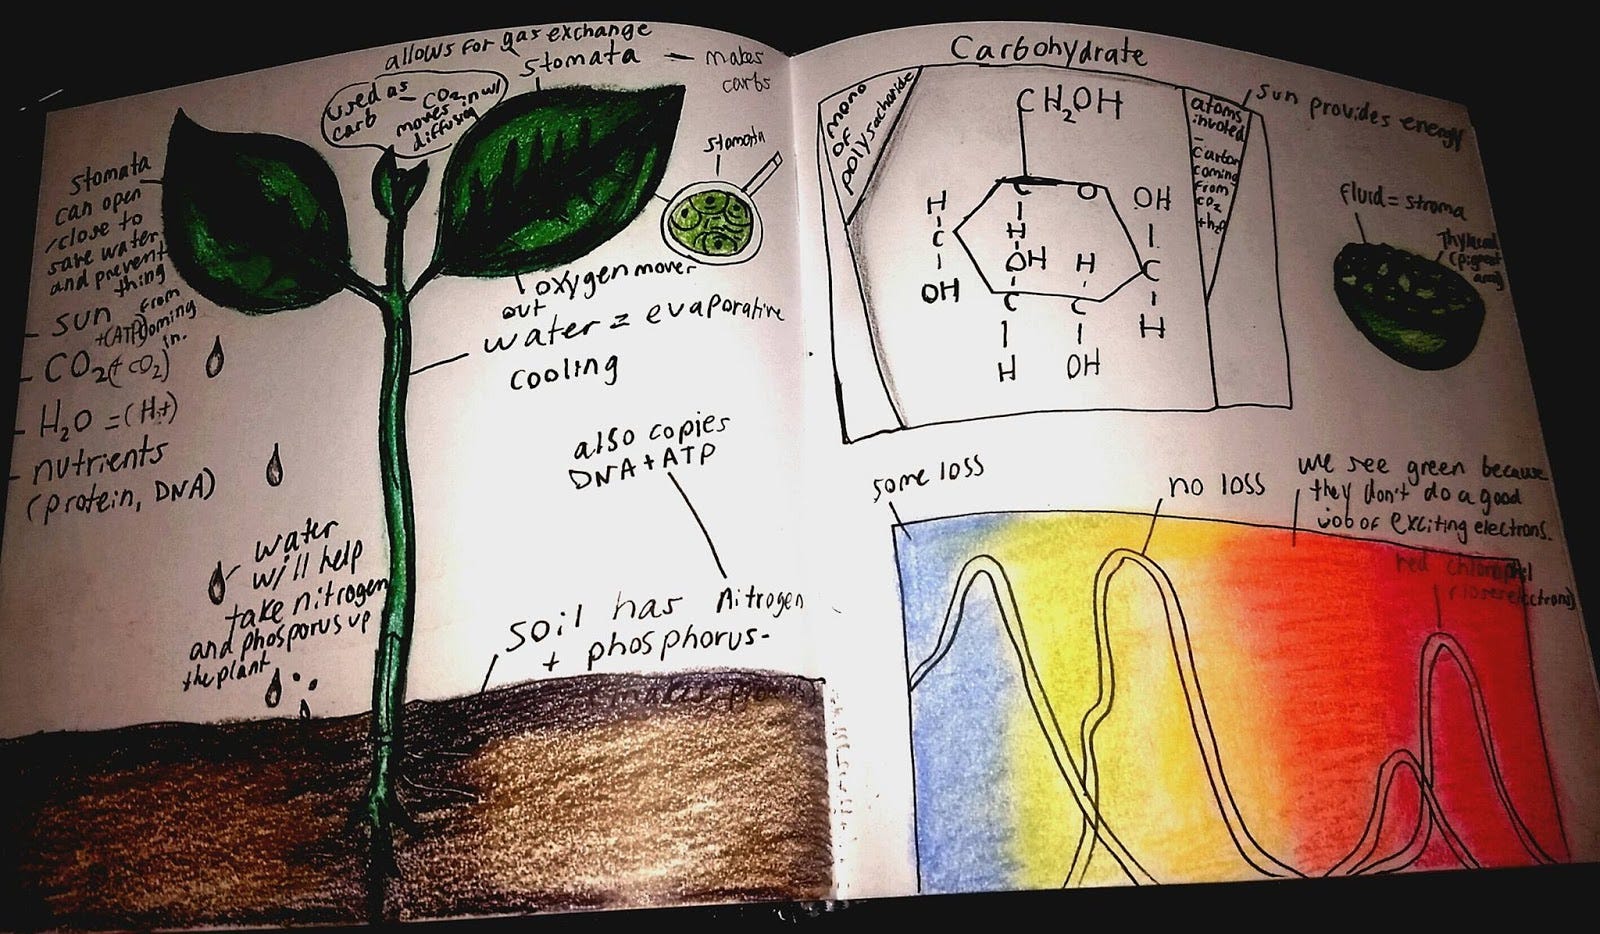 allows for gas exchange
stomata — makes
carbs
used as
carb
— CO2
moves in w/
diffusion
stomata
stomata
can open
/close to
save water
and prevent
thing
- sun from
+(ATP) coming
in.
- CO2 (+ CO2)
- H2O = (H+)
- nutrients
(protein, DNA)
oxygen moves
out
water = evaporative
cooling
also copies
DNA + ATP
water
will help
take nitrogen
and phosporus up
the plant
soil has nitrogen
+ phosphorus-
Carbohydrate
mono
of
polysacharide
CH2OH
C O
H OH
C H C
OH OH H H
C C
H OH
atoms
involed
-
carbon
coming
from
CO2
+ H2O
sun provides energy
fluid = stroma
some loss
no loss
we see green because
they don't do a good
job of exciting electrons.
red chlorophil